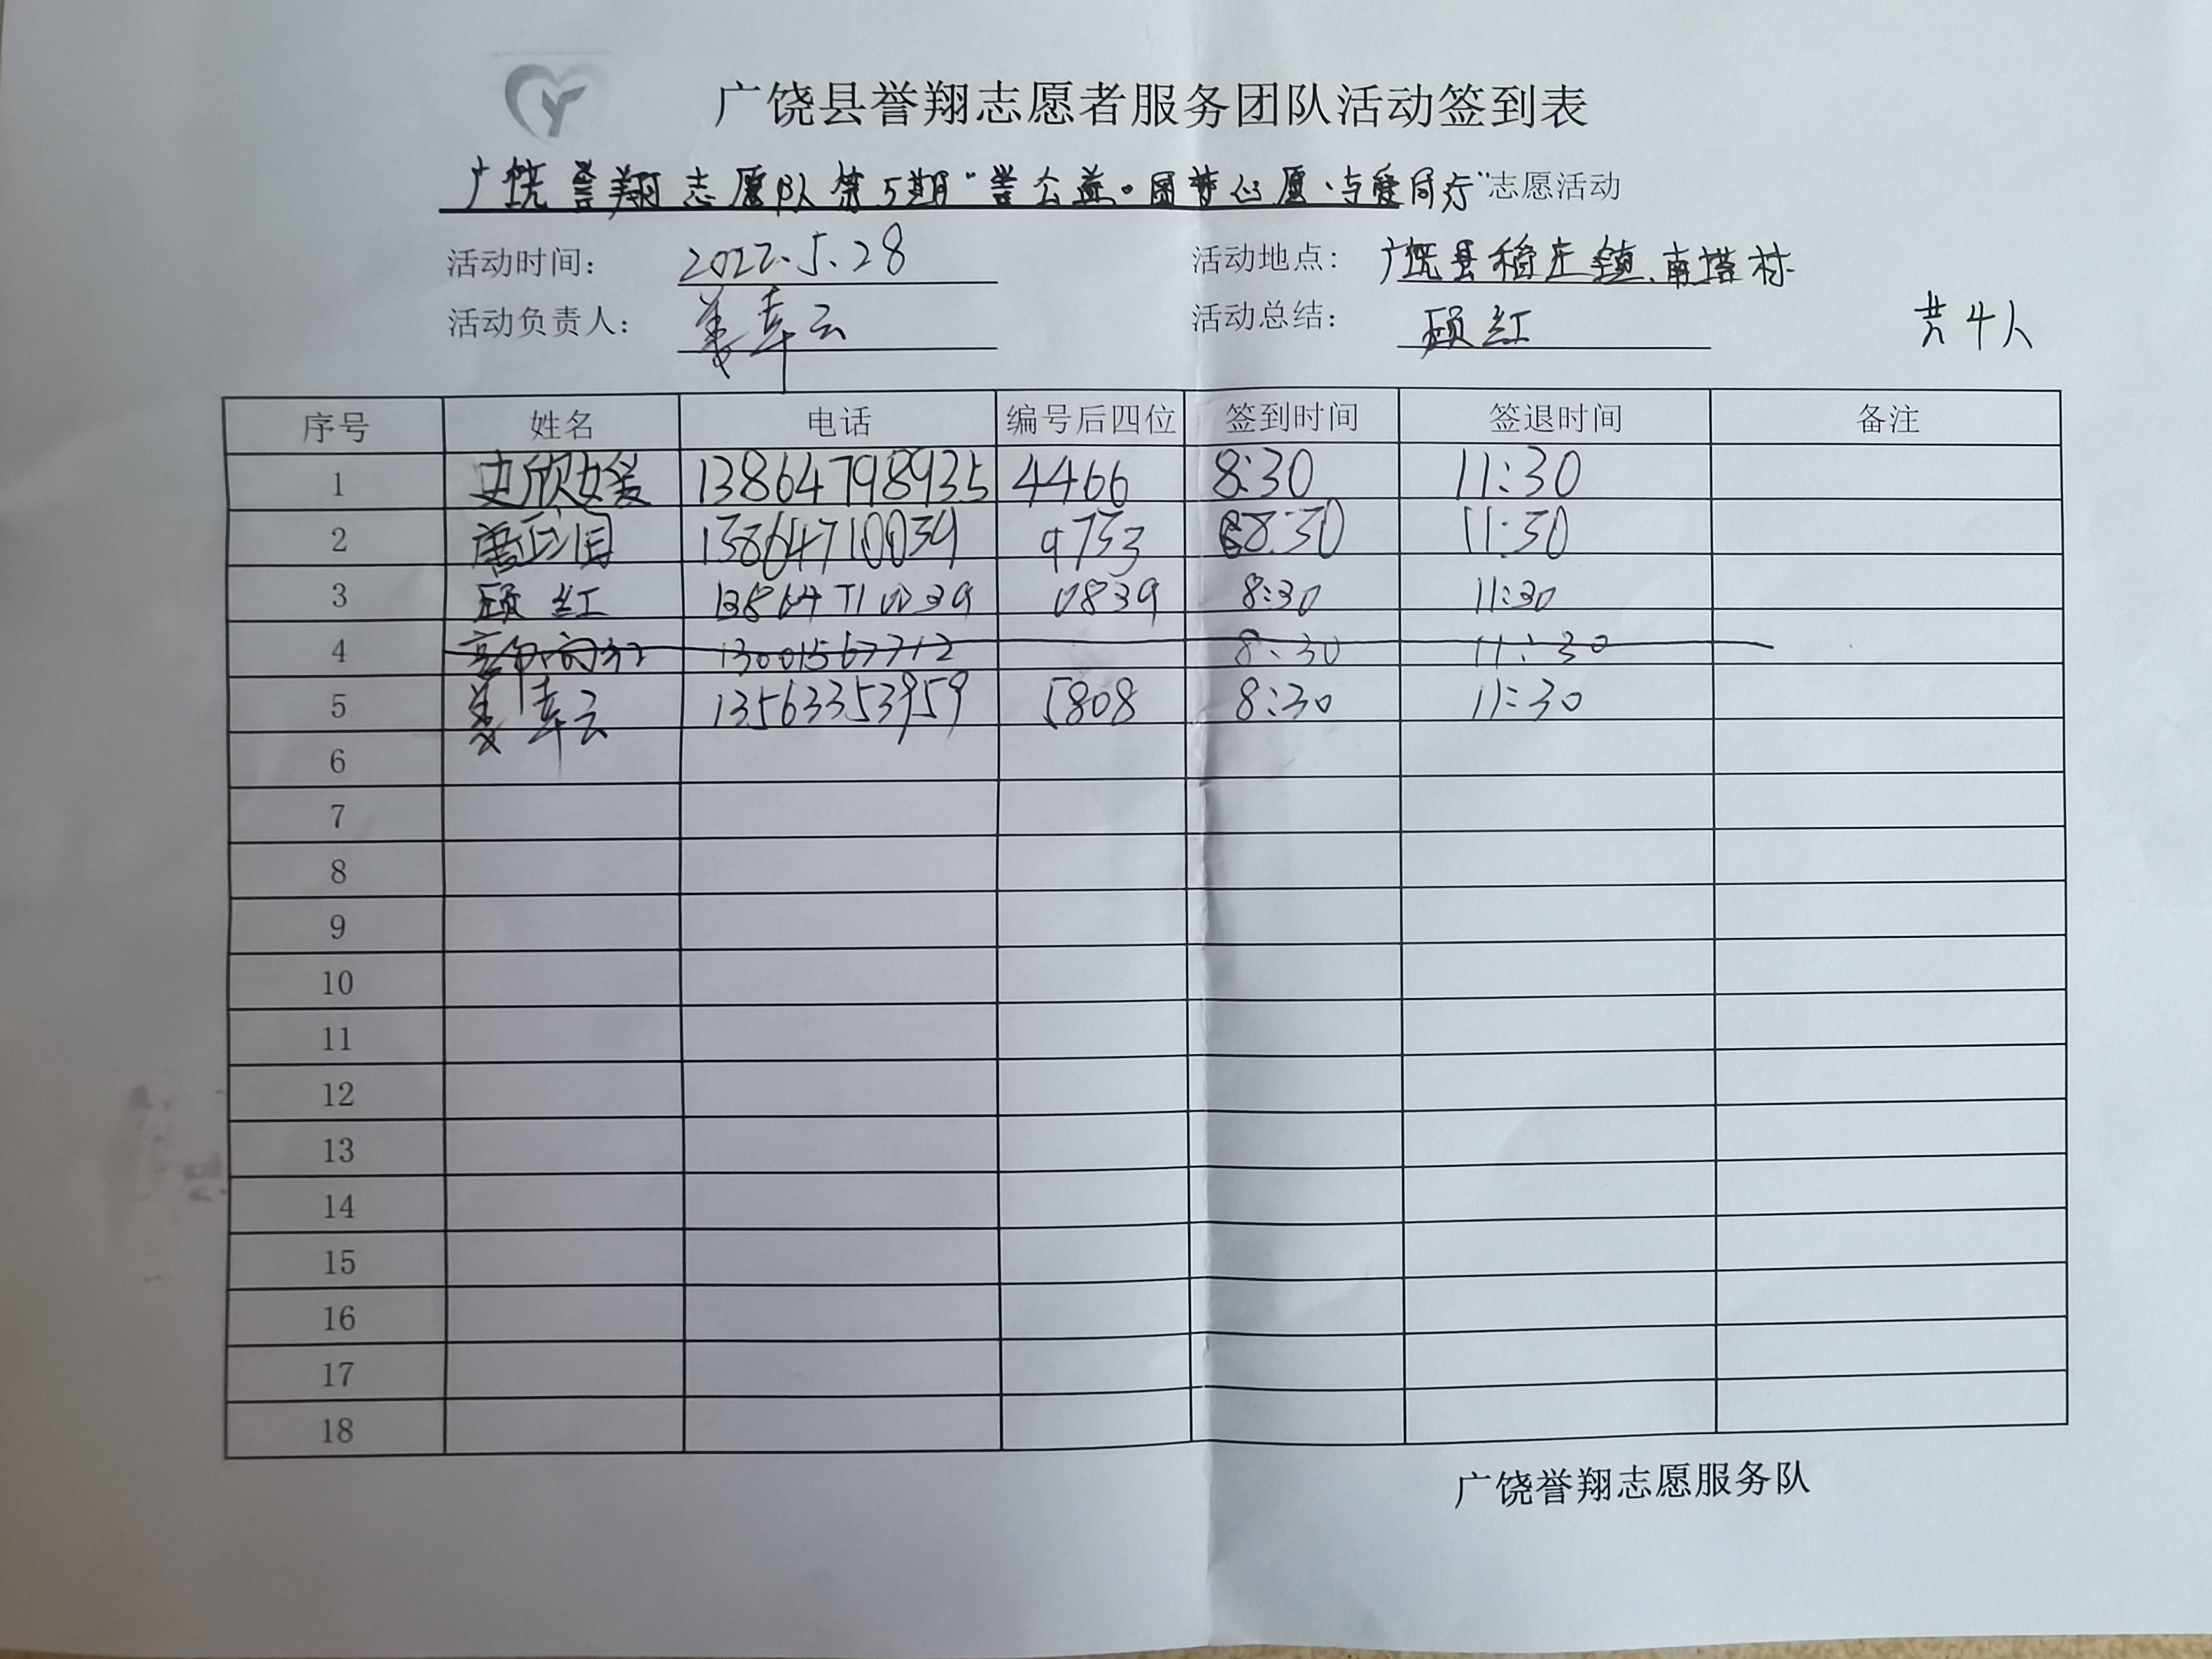 广饶县誉翔志愿者服务团队活动签到表
广饶誉翔志愿队第5期"誉公益。圆梦心愿、与爱同行"志愿活动
活动时间: 2022.5.28 活动地点: 广饶县稻庄镇、南塔村
活动负责人: 姜幸云 活动总结: 顾红 共4人
序号 姓名 电话 编号后四位 签到时间 签退时间 备注
1 史欣媛 13864798935 4466 8:30 11:30
2 唐 13864710039 9733 8:30 11:30
3 顾红 13864710039 0839 8:30 11:30
4 13001567712 8:30 11:30
5 姜幸云 13563353959 5808 8:30 11:30
6
7
8
9
10
11
12
13
14
15
16
17
18
广饶誉翔志愿服务队